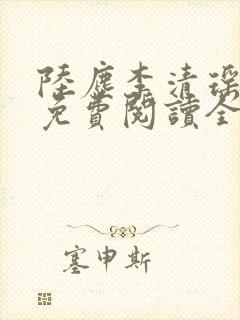 陸塵李清瑶
免費閱讀全
塞申斯